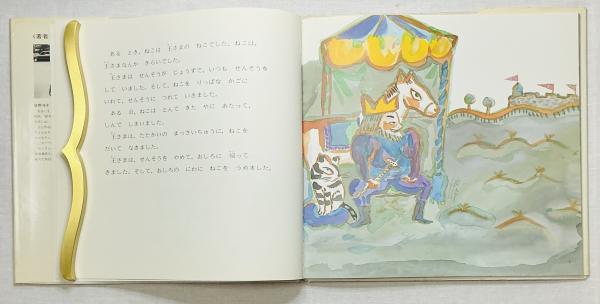 ある とき、ねこは 王さまの ねこでした。ねこは、
王さまなんか きらいでした。
王さまは せんそうが じょうずで、いつも せんそうを
して いました。そして、ねこを りっぱな かごに
いれて、せんそうに つれて いきました。
ある 日、ねこは とんで きた やに あたって、
しんで しまいました。
王さまは、たたかいの まっさいちゅうに、ねこを
だいて なきました。
王さまは、せんそうを やめて、おしろに 帰って
きました。そして、おしろの にわに ねこを うめました。